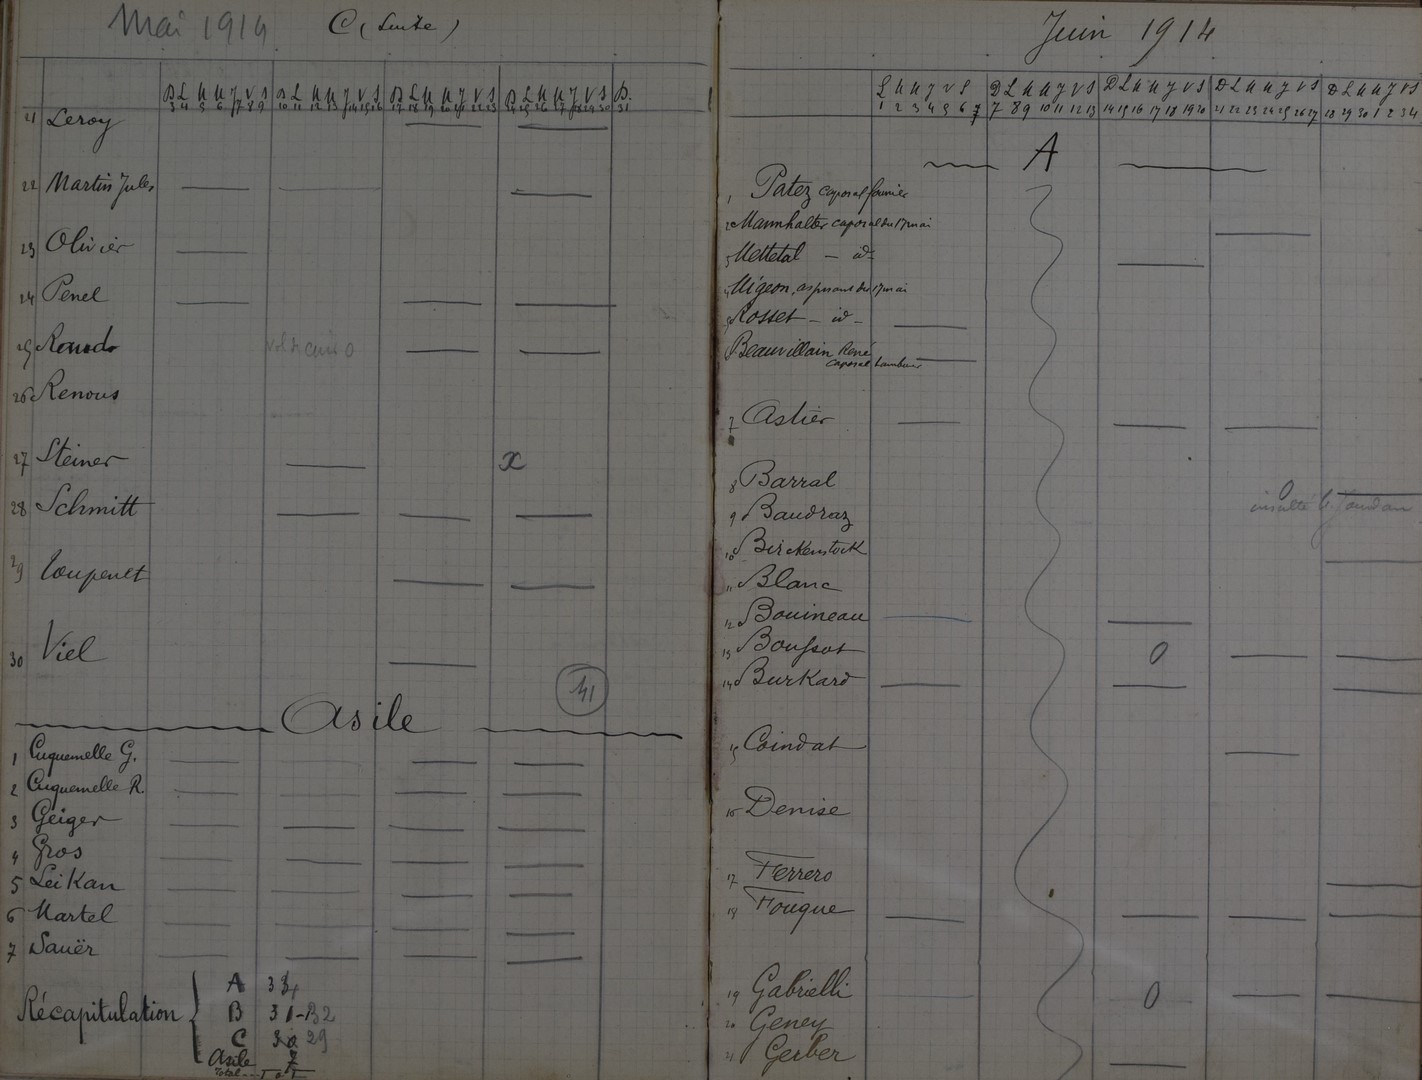 Mai 1914 C (Suite)
D L M M J V S D L M M J V S D L M M J V S D L M M J V S D.
3 4 5 6 7 8 9 10 11 12 13 14 15 16 17 18 19 20 21 22 23 24 25 26 27 28 29 30 31
21 Leroy
22 Martin Jules
23 Olivier
24 Penel
25
26 Renous
27 Steiner x
28 Schmitt
29 Toupenet
30 Viel
41
Asile
1 Cuquemelle G.
2 Cuquemelle R.
3 Geiger
4 Gros
5 Leikan
6 Martel
7 Sauër
Récapitulation
A 34
B 31-32
C 30 29
Asile 7
Total
Juin 1914
L M M J V S D L M M J V S D L M M J V S D L M M J V S D L M M J V S
1 2 3 4 5 6 7 7 8 9 10 11 12 13 14 15 16 17 18 19 20 21 22 23 24 25 26 27 28 29 30 1 2 3 4
A
1 Patez caporal fourrier
2 Mannhalter caporal du 17 mai
3 Mettetal - id -
4 Migeon, aspirant du 17 mai
5 Rosset - id -
Beauvillain René
caporal tambour
7 Astier
8 Barral 0
insulté
9 Baudraz
10 Birckenstock
11 Blanc
12 Bouineau
13 Boussot 0
14 Burkard
15 Coindat
16 Denise
17 Ferrero
18 Fouque
19 Gabrielli 0
20 Geney
21 Gerber